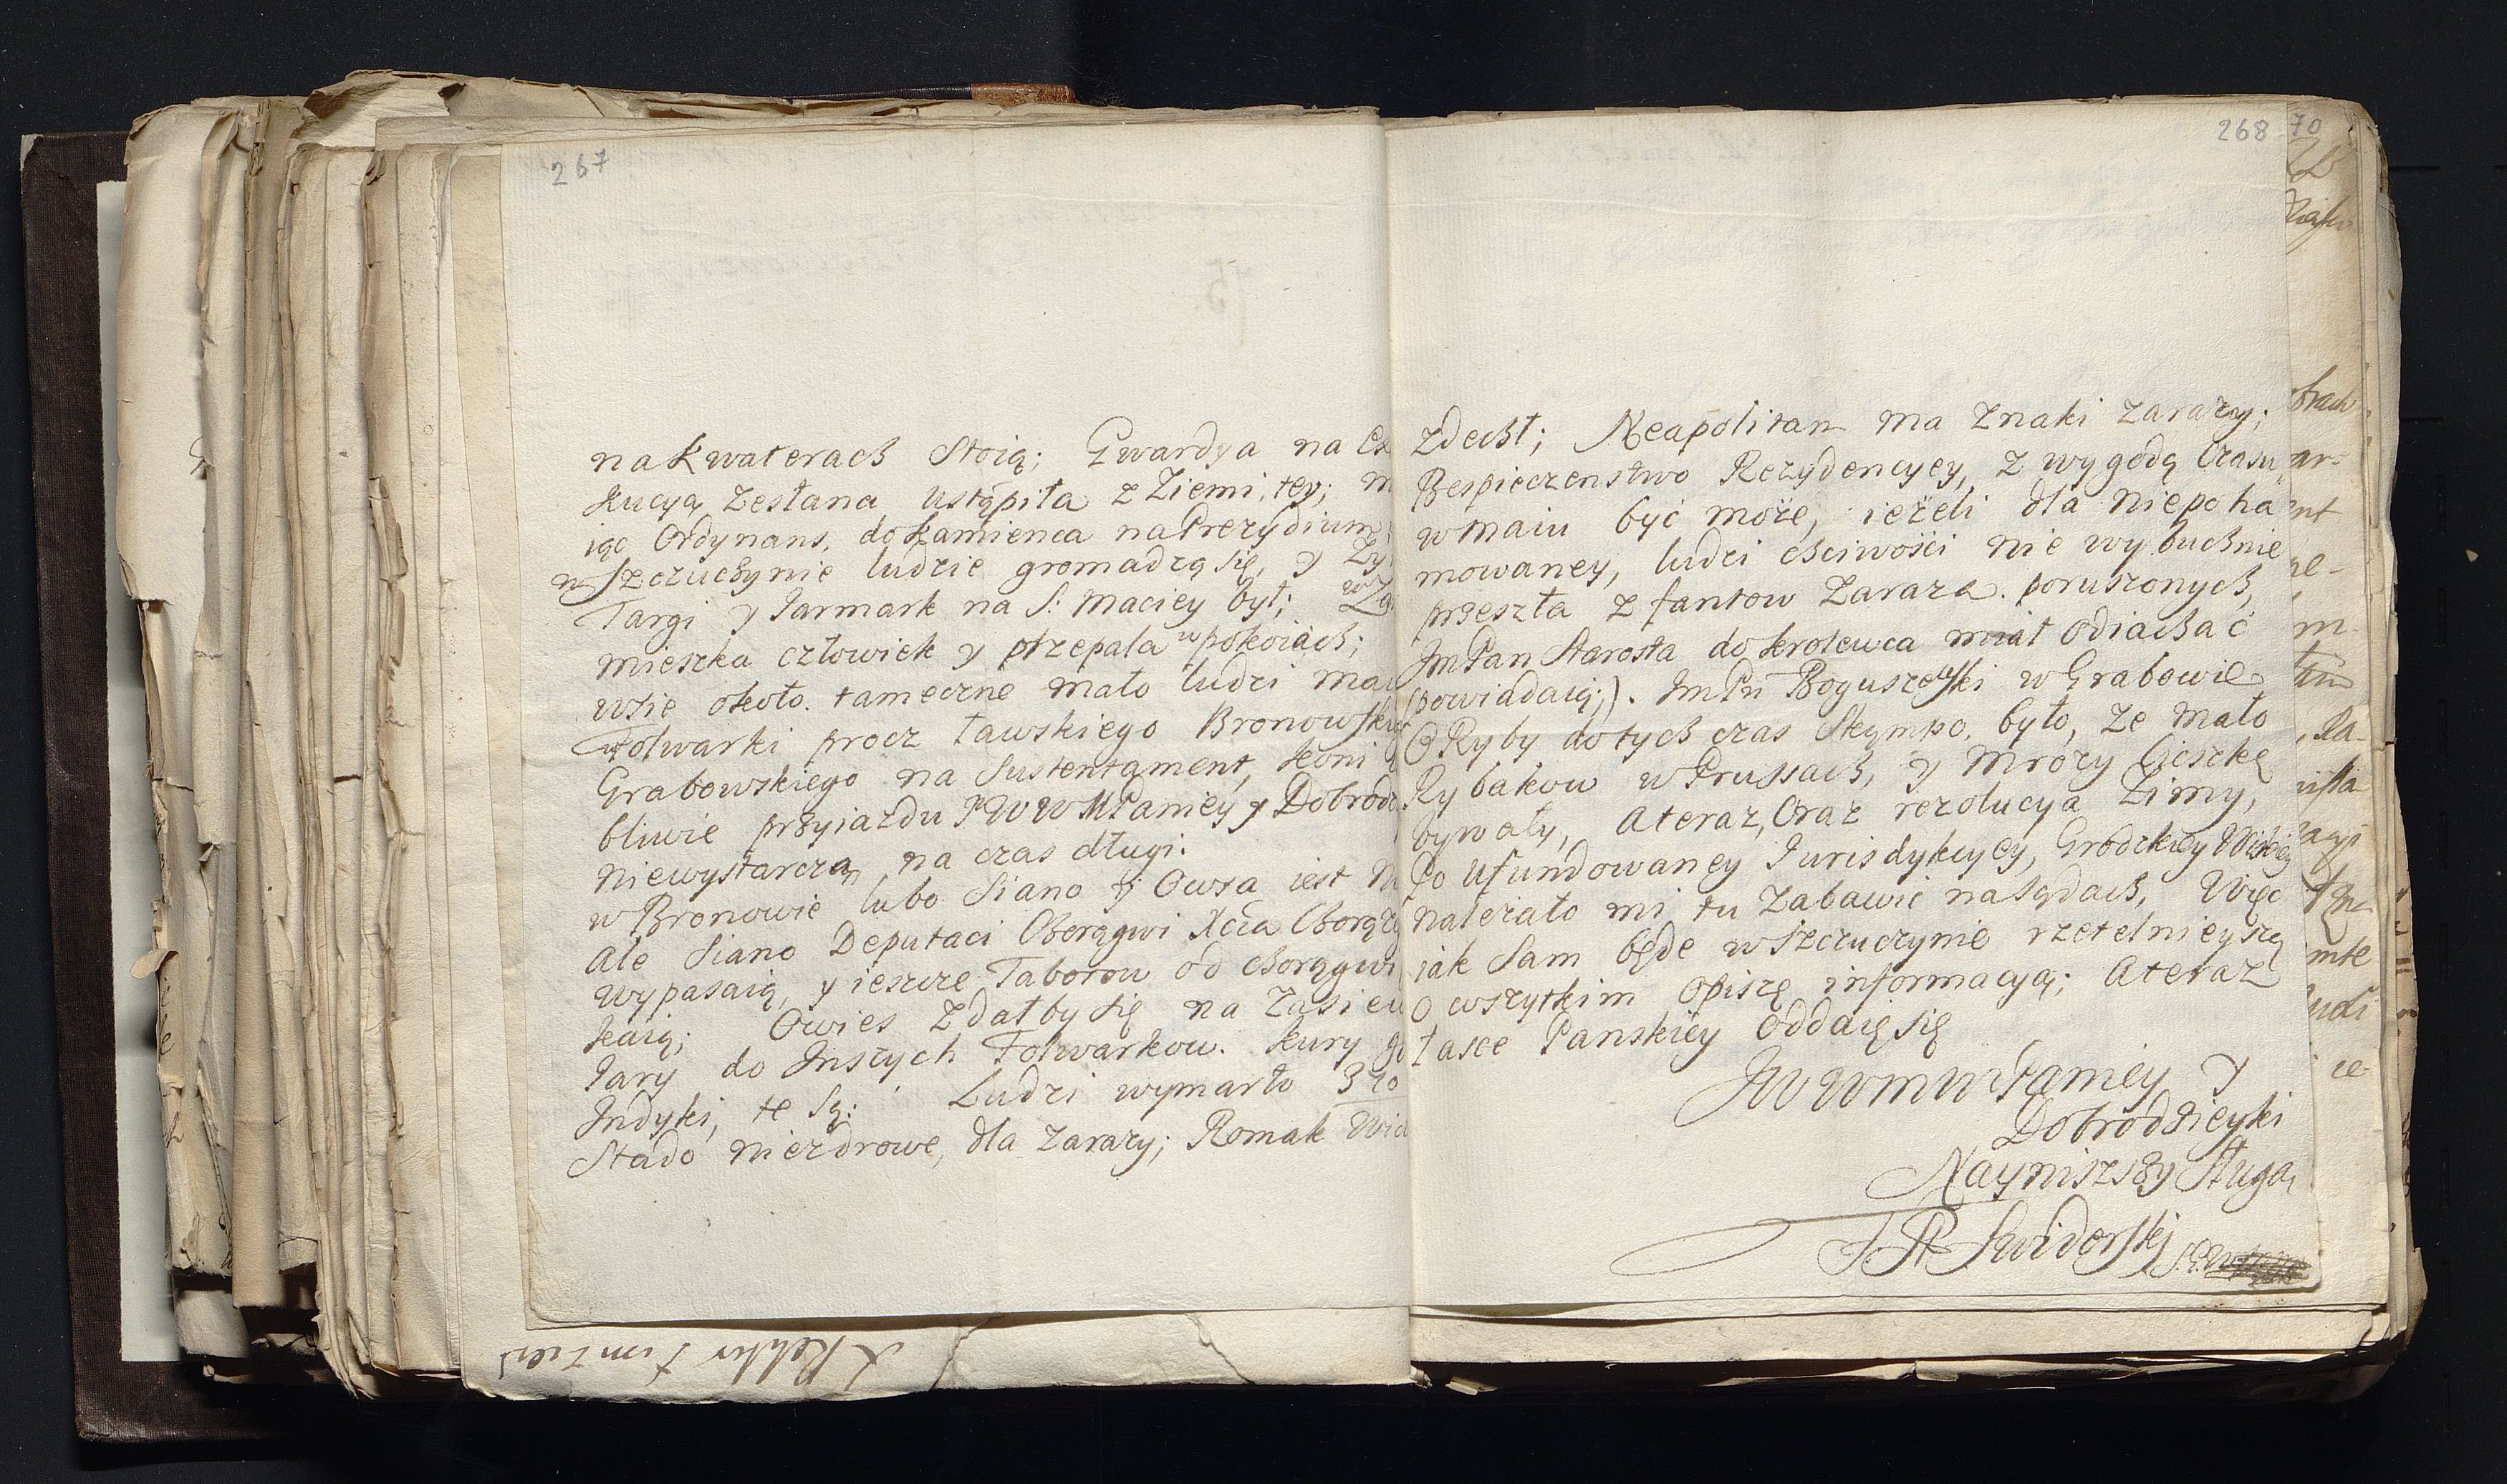 267
na Kwaterach Stoią; Gwardya na Ex
kucyą Zesłana, Ustąpiła z Ziemi tey; m
iąc Ordynans, do Kamienca na Prezydium
w Szczuchynie ludzie gromadzą się, y
Targi y Jarmark na S: Maciey był;
mieszka człowiek y przepala w pokoiach;
wsie około tameczne mało ludzi ma
Folwarki procz Ławskiego Bronowsk
Grabowskiego na Sustentament, koni
bliwie przyiazdu JWWMPaniey y Dobrod
niewystarczą, na czas długi.
w Bronowie lubo Siano y Owsa iest
Ale Siano Deputaci Chorągwi Xcia Chorąż
wypasaią, y ieszcze Taborow od chorągwi
kaią; Owies zdałby się na Zasiew
Jary do Inszych Folwarkow. Kury
Indyki, te są: Ludzi wymarło 370
Stado niezdrowe, dla zarazy; Romak
268
zdechł; Neapolitan ma Znaki zarazy;
Bespieczenstwo Rezydencyey, z wygodą Czasu
w maiu być może, ieżeli dla niepoha
mowaney, ludzi chciwości nie wybuchnie
przeszła z fantow Zaraza poruszonych,
JmPan Starosta do krolewca miał odiachać
(powiadaią;). JmPn Boguszewski w Grabowie
O Ryby do tych czas Skąmpo było, ze mało
Rybakow w Prussach, y Mrozy Cieszkę
bywały, A teraz, Oraz rezolucya Zimy,
Po Ufundowaney Jurisdykcyey, Grodzkiey Wiskiey
należało mi tu Zabawic na Sądach, Więc
iak Sam będe w Szczuczynie rzetelnieyszą
O wszytkim Opiszę informacyą; A teraz
łasce Panskiey Oddaię się
JWWMMPaniey y
Dobrodzieyki
Nayniższy Sługa
Swiderski